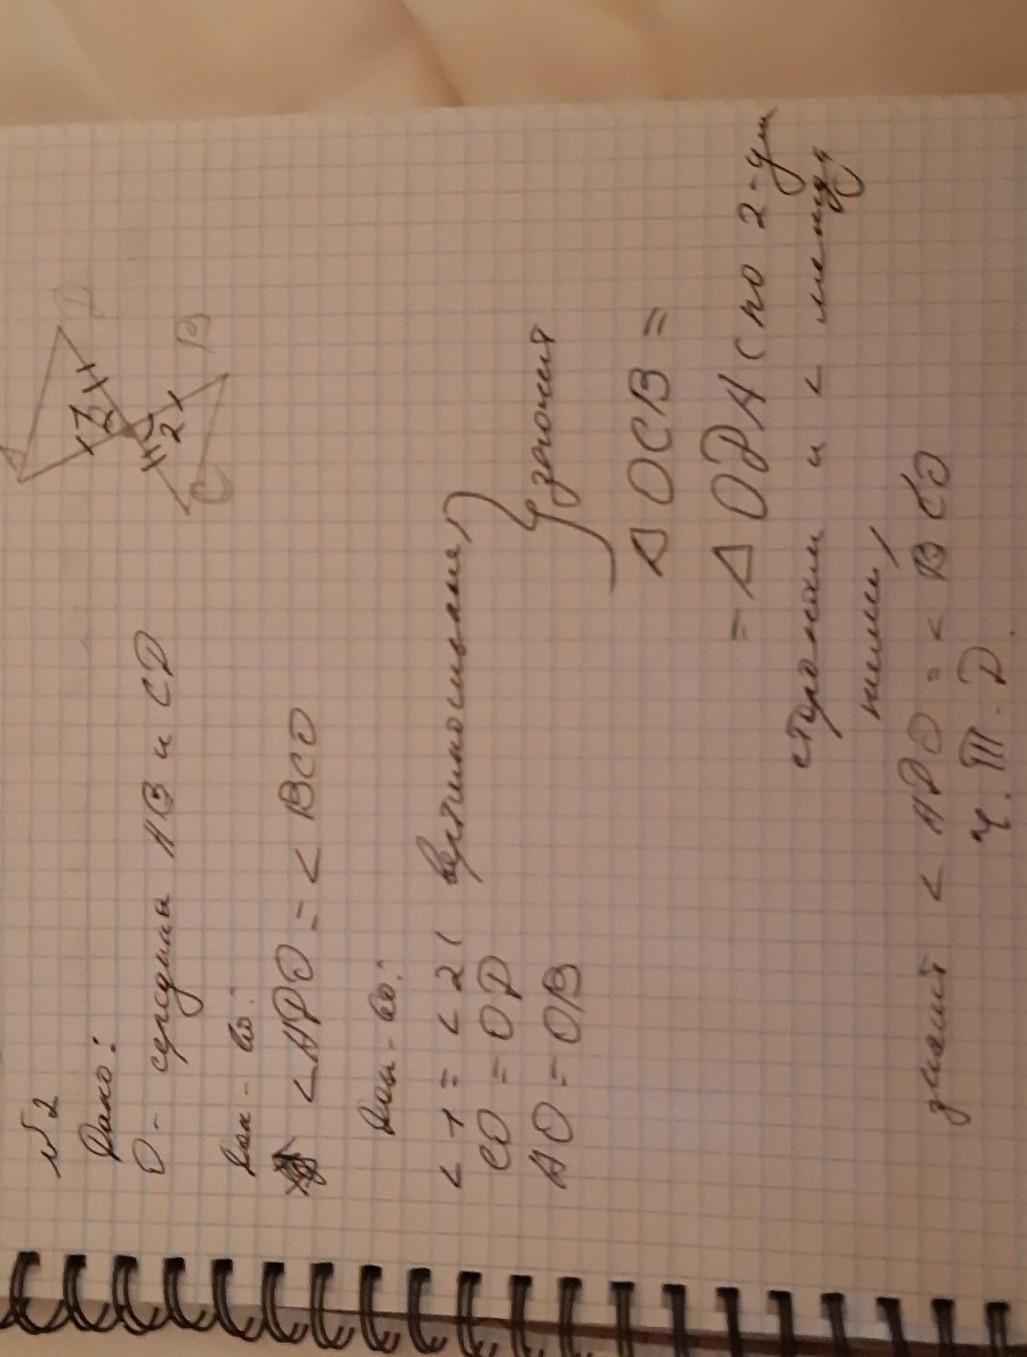 №2
Дано:
O - середина AB и CD
Док-во:
<ADO = < BCO
Док-во:
< 1 = < 2 ( вертикальные)
CO = OD
AO = OB
значит
Δ OCB =
= Δ ODA ( по 2-ум
сторонам и < между
ними)
значит < ADO = < BCO
Ч. Т. Д.
A
D
1
2
C
B